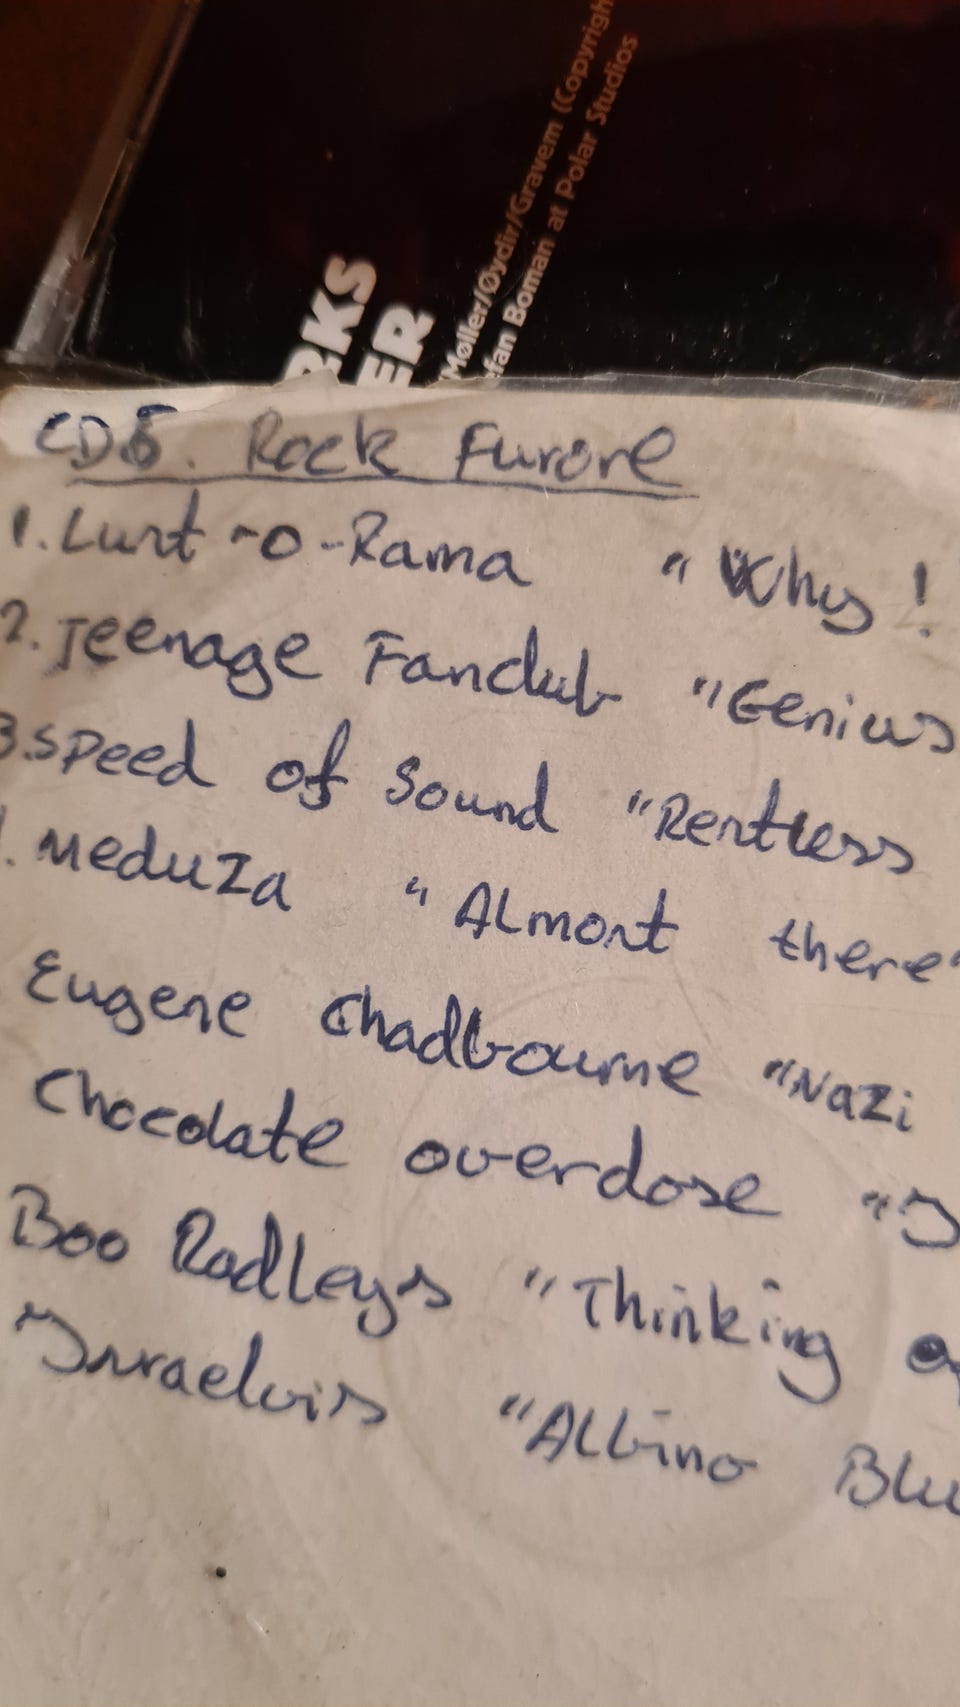 RKS
ER
Møller/Øydir/Gravem (Copyrigh
fan Boman at Polar Studios
CD5. Rock Furore
1. Lust-o-Rama "Why!
2. Teenage Fanclub "Genius
3. Speed of Sound "Rentless
. Meduza "Almost there"
Eugene Chadbourne "Nazi
Chocolate overdose "I
Boo Radleys "Thinking of
Israelvis "Albino Blu